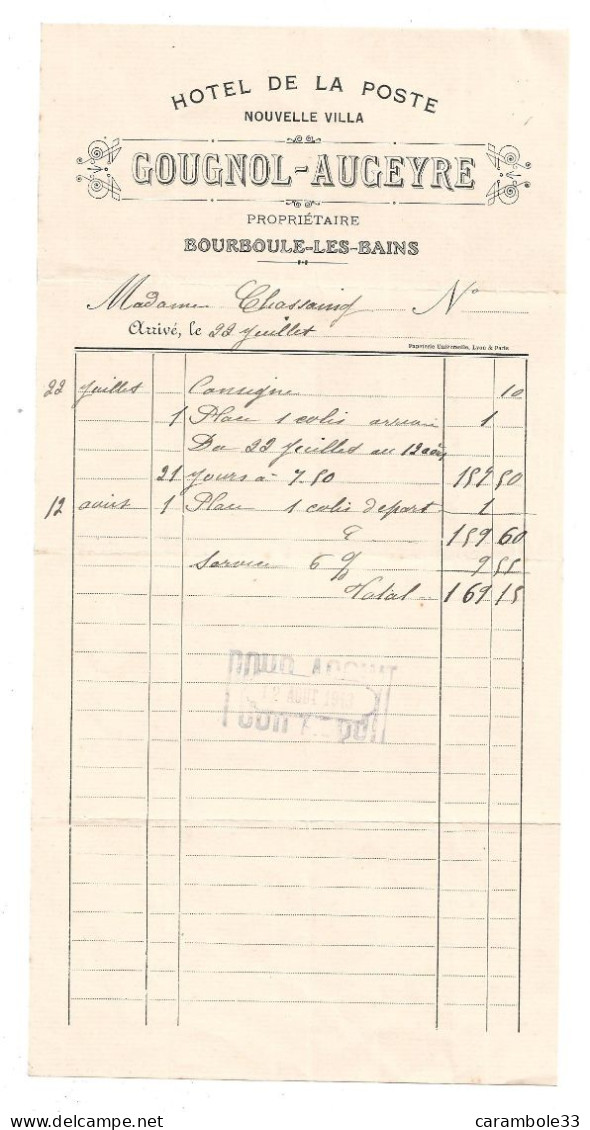 HOTEL DE LA POSTE
NOUVELLE VILLA
GOUGNOL-AUGEYRE
PROPRIÉTAIRE
BOURBOULE-LES-BAINS
Madame Chassaing N°
Arrivé, le 22 juillet
Papeterie Universelle, Lyon & Paris
22 juillet Consigne 10
1 Place 1 colis arrivé 1
Du 22 juillet au 12 août
21 jours à 7.50 157 50
12 août 1 Place 1 colis départ 1
159 60
Service 6 % 9 55
Total 169 15
POUR ACQUIT
12 AOUT
carambole33